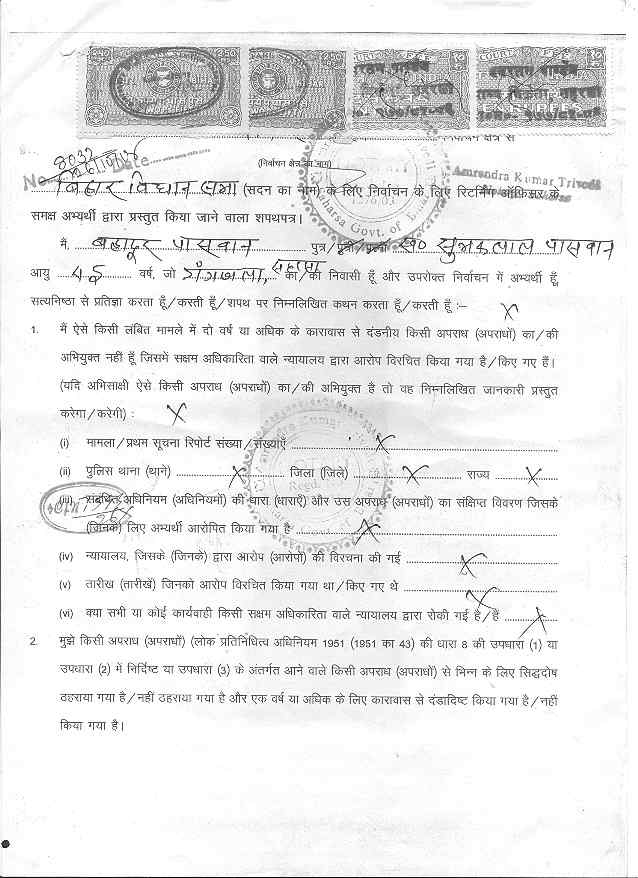 250
250
COURT FEES
COURT FEES
RUPEES
निर्वाचन क्षेत्र से
(निर्वाचन क्षेत्र का नाम)
No. Date
Amrendra Kumar Trivedi
बिहार विधान सभा (सदन का नाम) के लिए निर्वाचन के लिए रिटर्निंग ऑफिसर के
समक्ष अभ्यर्थी द्वारा प्रस्तुत किया जाने वाला शपथपत्र।
मैं, बहादूर पासवान पुत्र/पुत्री/पत्नी स्व० पासवान
आयु वर्ष, जो सहरसा का/की निवासी हूँ और उपरोक्त निर्वाचन में अभ्यर्थी हूँ,
सत्यनिष्ठा से प्रतिज्ञा करता हूँ/करती हूँ/शपथ पर निम्नलिखित कथन करता हूँ/करती हूँ :–
1. मैं ऐसे किसी लंबित मामले में दो वर्ष या अधिक के कारावास से दंडनीय किसी अपराध (अपराधों) का/की
अभियुक्त नहीं हूँ जिसमें सक्षम अधिकारिता वाले न्यायालय द्वारा आरोप विरचित किया गया है/किए गए हैं।
(यदि अभिसाक्षी ऐसे किसी अपराध (अपराधों) का/की अभियुक्त है तो वह निम्नलिखित जानकारी प्रस्तुत
करेगा/करेगी) : X
(i) मामला/प्रथम सूचना रिपोर्ट संख्या/संख्याएँ X
(ii) पुलिस थाना (थाने) X जिला (जिले) X राज्य X
(iii) संबंधित अधिनियम (अधिनियमों) की धारा (धाराएँ) और उस अपराध (अपराधों) का संक्षिप्त विवरण जिसके
(जिनके) लिए अभ्यर्थी आरोपित किया गया है X
(iv) न्यायालय, जिसके (जिनके) द्वारा आरोप (आरोपों) की विरचना की गई X
(v) तारीख (तारीखें) जिनको आरोप विरचित किया गया था/किए गए थे X
(vi) क्या सभी या कोई कार्यवाही किसी सक्षम अधिकारिता वाले न्यायालय द्वारा रोकी गई है/हैं X
2. मुझे किसी अपराध (अपराधों) (लोक प्रतिनिधित्व अधिनियम 1951 (1951 का 43) की धारा 8 की उपधारा (1) या
उपधारा (2) में निर्दिष्ट या उपधारा (3) के अंतर्गत आने वाले किसी अपराध (अपराधों) से भिन्न के लिए सिद्धदोष
ठहराया गया है/नहीं ठहराया गया है और एक वर्ष या अधिक के लिए कारावास से दंडादिष्ट किया गया है/नहीं
किया गया है।